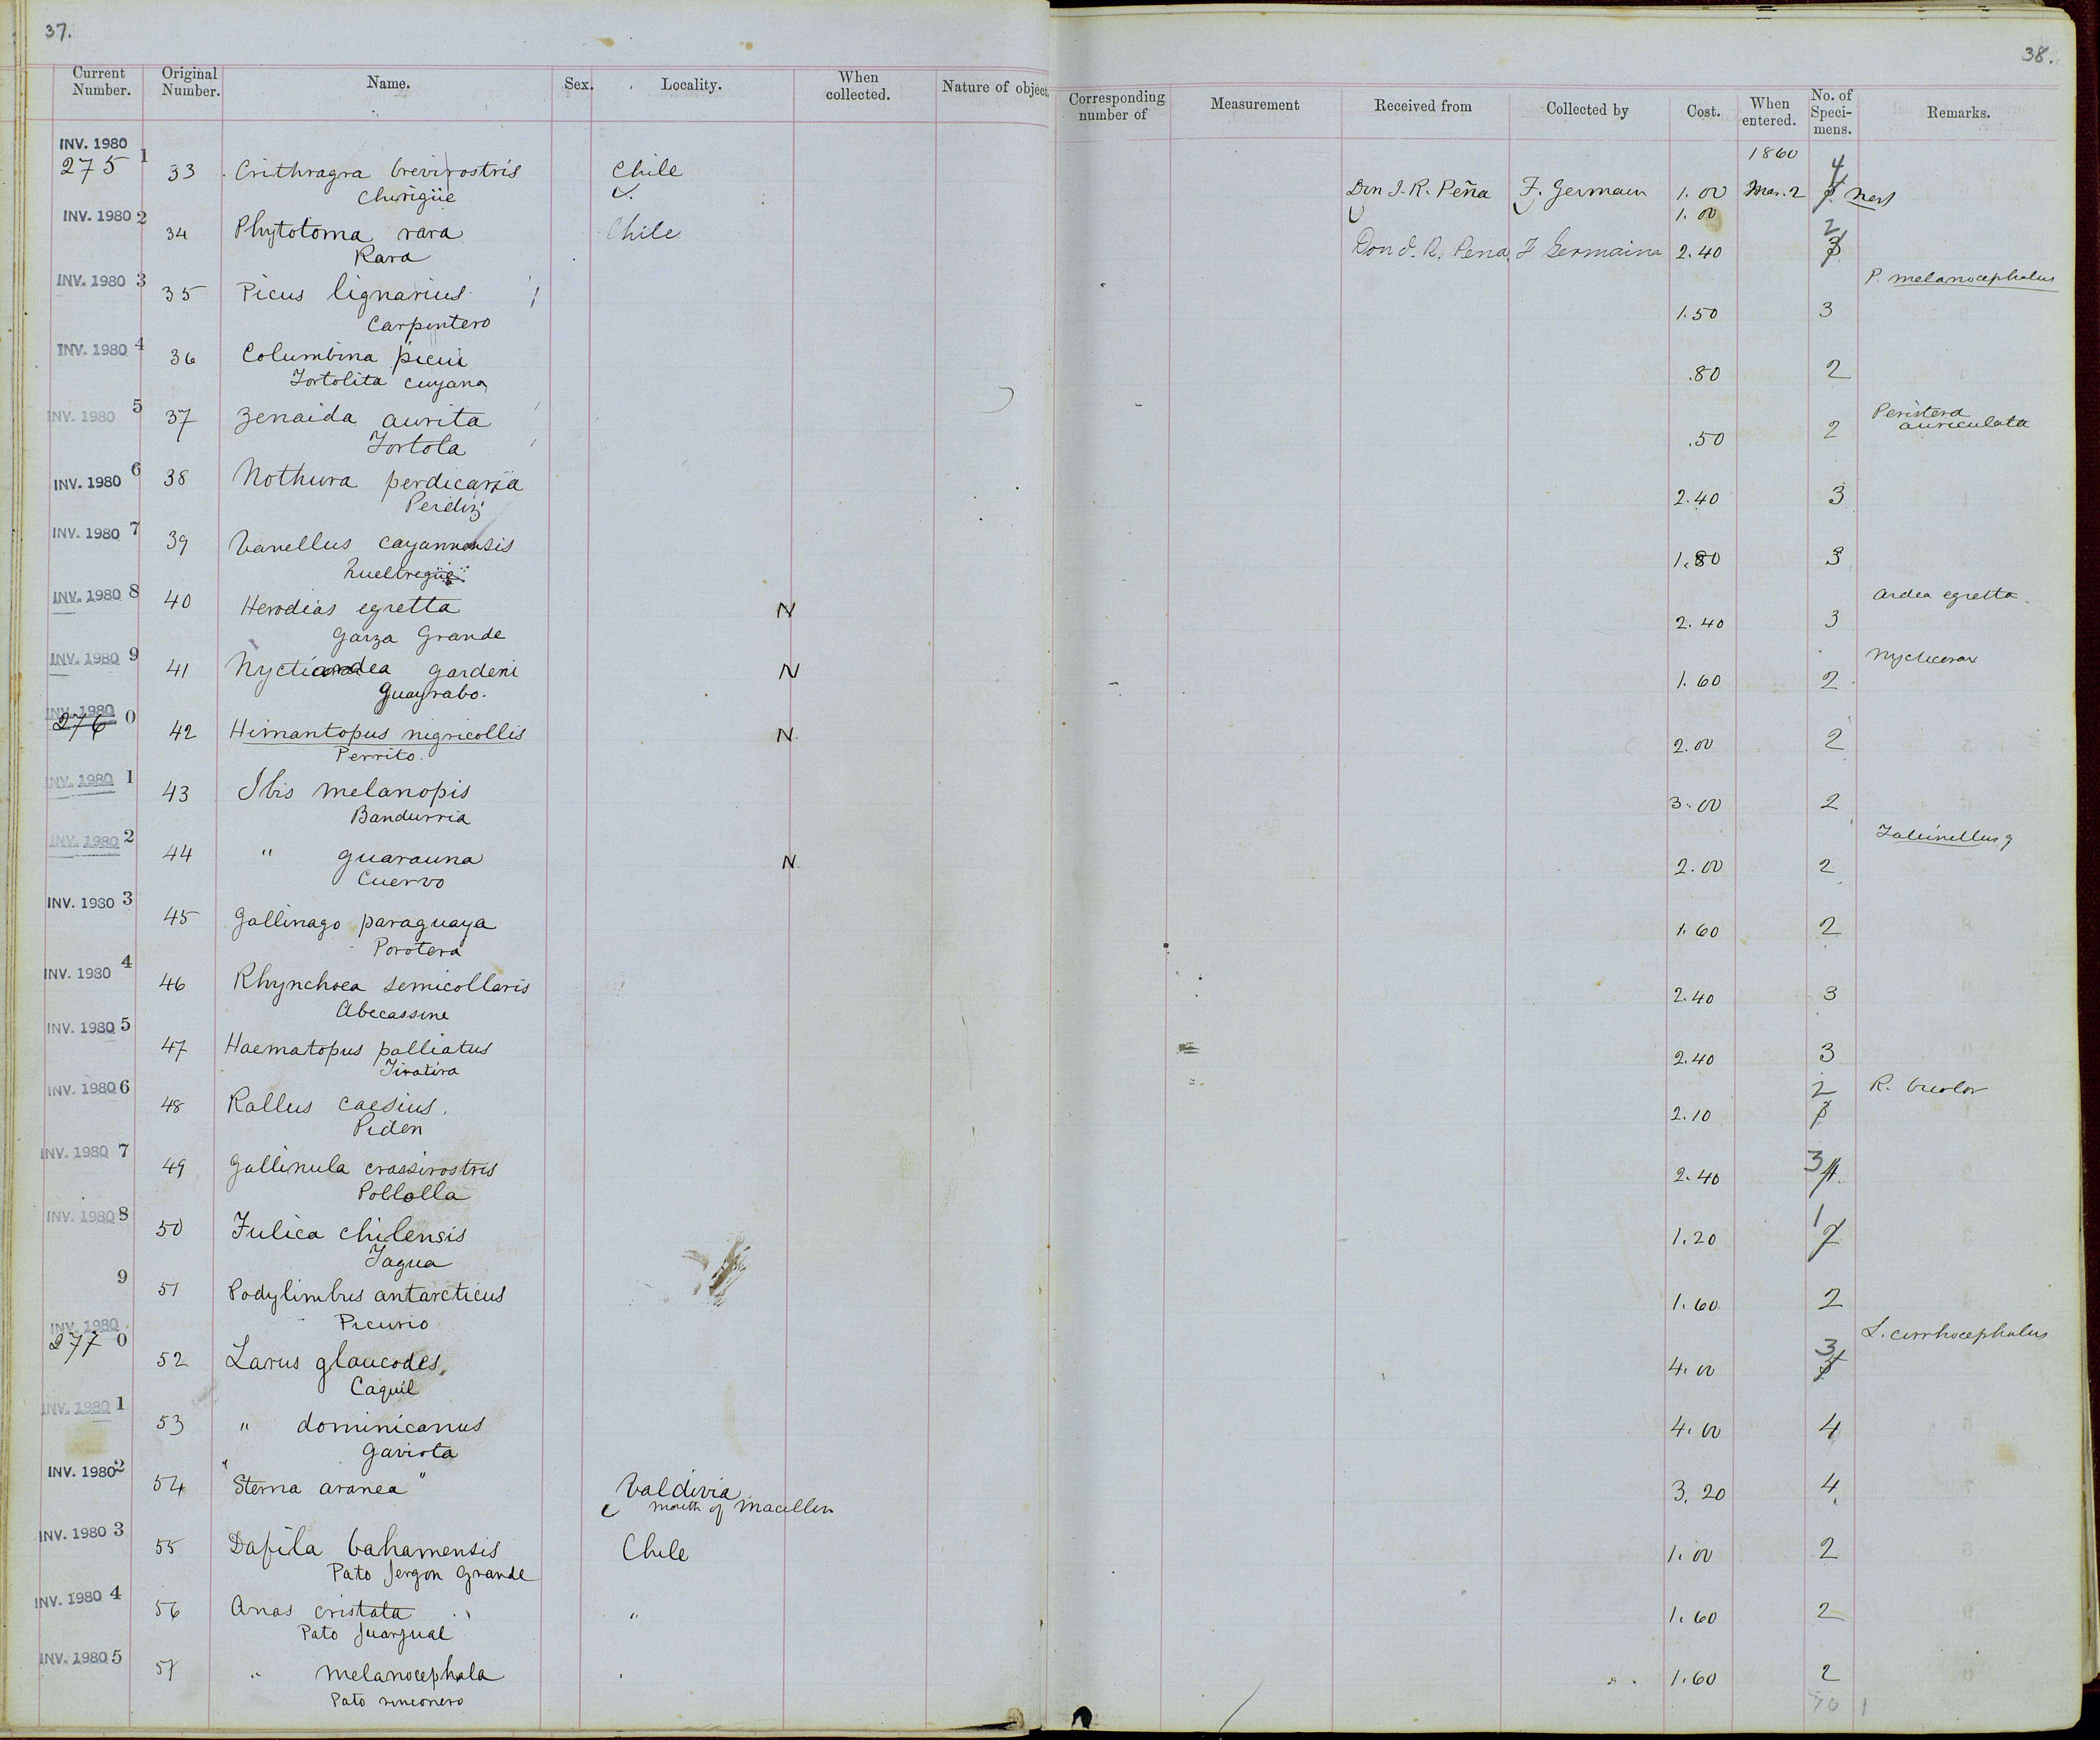 37.
38.
Current Number. Original Number. Name. Sex. Locality. When collected. Nature of object.
Corresponding number of Measurement Received from Collected by Cost. When entered. No. of Specimens. Remarks.
INV. 1980
1860
275 1 33 Crithragra brevirostris Chile Don I. R. Peña F. Germain 1.00 Mar. 2 4 nest
Chirigüe 1.00
INV. 1980 2 34 Phytotoma rara Chile Don I. R. Pena F Germain 2.40 2 3
Rara
INV. 1980 3 35 Picus lignarius 1.50 3 P. melanocephalus
Carpintero
INV. 1980 4 36 Columbina picui .80 2
Tortolita cuyana
INV. 1980 5 37 Zenaida aurita .50 2 Peristera auriculata
Tortola
INV. 1980 6 38 Nothura perdicaria 2.40 3
Perdiz
INV. 1980 7 39 Vanellus cayannensis 1.80 3
Queltregüe
INV. 1980 8 40 Herodias egretta N 2.40 3 Ardea egretta
Garza Grande
INV. 1980 9 41 Nyctiardea gardeni N 1.60 2 Nycticorax
Guayrabo.
INV. 1980
276 0 42 Himantopus nigricollis N 2.00 2
Perrito.
INV. 1980 1 43 Ibis melanopis 3.00 2
Bandurria
INV. 1980 2 44 " guarauna N 2.00 2 Falcinellus g
Cuervo
INV. 1980 3 45 Gallinago paraguaya 1.60 2
Porotera
INV. 1980 4 46 Rhynchoea semicollaris 2.40 3
Abecassine
INV. 1980 5 47 Haematopus palliatus 2.40 3
Tiratira
INV. 1980 6 48 Rallus caesius. 2.10 2 3 R. bicolor
Piden
INV. 1980 7 49 Gallinula crassirostris 2.40 3 4
Pollolla
INV. 1980 8 50 Fulica chilensis 1.20 1 2
Tagua
9 51 Podylimbus antarcticus 1.60 2
Picurio
INV. 1980
277 0 52 Larus glaucodes 4.00 3 5 L. cirrhocephalus
Caquil
INV. 1980 1 53 " dominicanus 4.00 4
Gaviota
INV. 1980 2 54 "Sterna aranea" Valdivia 3.20 4
mouth of
INV. 1980 3 55 Dafila bahamensis Chile 1.00 2
Pato Jergon Grande
INV. 1980 4 56 Anas cristata " 1.60 2
Pato Juarjual
INV. 1980 5 57 " melanocephala 1.60 2
Pato rinconero
70 1